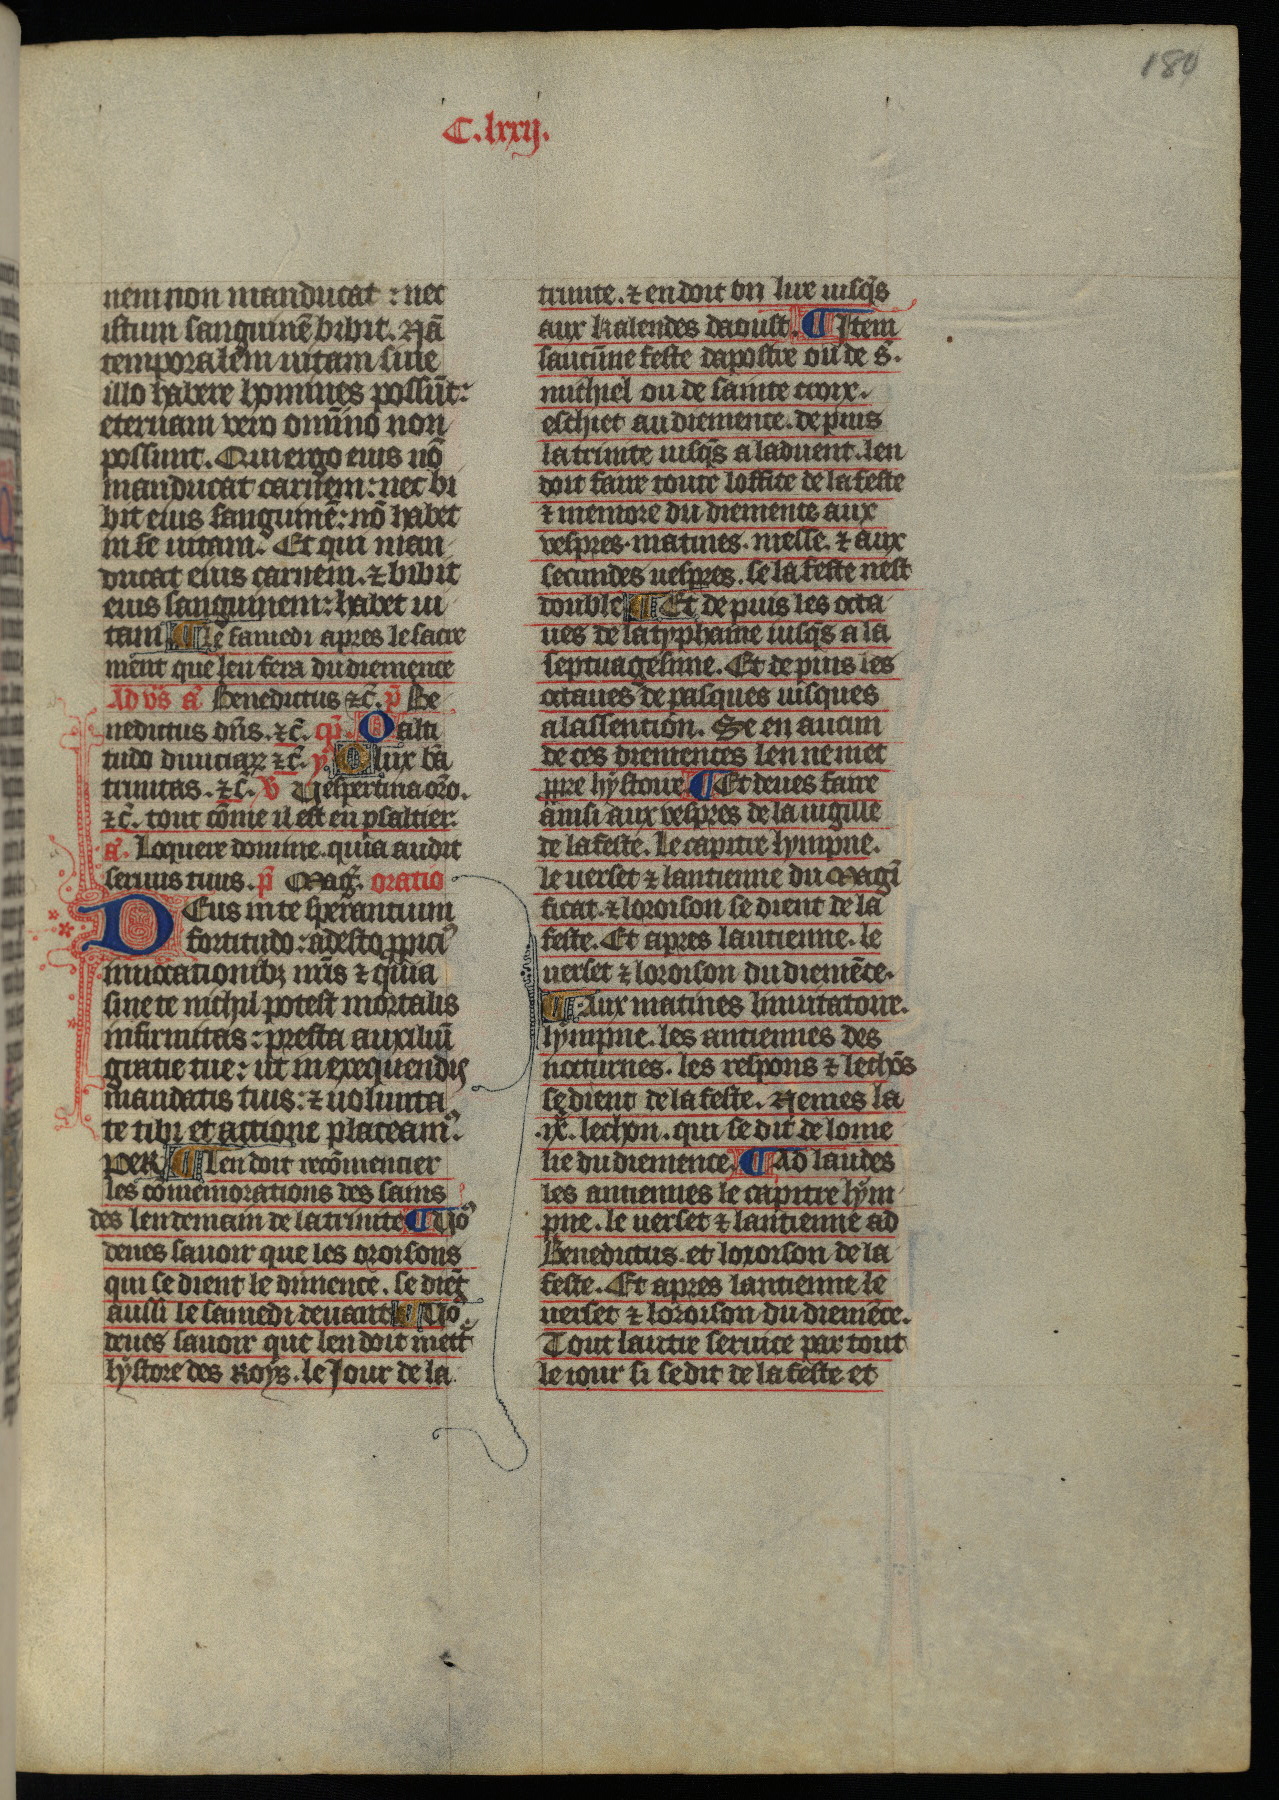 180
C. lxxij.
nem non manducat : nec
istum sanguinē bibit. Nā
temporalem uitam sine
illo habere homines possūt:
eternam vero omīno non
possunt. Qui ergo eius nō
manducat carnem: nec bi
bit eius sanguinē: nō habet
in se uitam. Et qui man
ducat eius carnem. ⁊ bibit
eius sanguinem: habet ui
tam ¶ Le samedi apres le sacre
ment que len fera du diemence
Ad vs̄ a. Benedictus ⁊c̄. p̄ Be
nedictus dn̄s. ⁊c̄. O alti
tudo diuiciaꝝ ⁊c̄. y O lux bā
trinitas. ⁊c̄. v Uespertina or̄o.
⁊c̄. tout cōme il est en psaltier.
a. Loquere domine. quia audit
seruus tuus. p̄ Mag̃. oratio
DEus in te sperantium
fortitudo: adesto ꝓpici⁹
inuocationibꝫ nr̄is ⁊ quia
sine te nichil potest mortalis
infirmitas: presta auxiliū
gratie tue: ut in exequendis
mandatis tuis: ⁊ uolunta
te tibi et actione placeam⁹.
PER ¶ Len doit recōmencier
les cōmemorations des sains
des lendemain de la trinite ¶ Uo⁹
deues sauoir que les oroisons
qui se dient le dimence. se diēt
aussi le samedi deuant ¶ Uo⁹
deues sauoir que len doit mett᷑
hystore des Roys. le Jour de la
trinite. ⁊ en doit on lire iusq̄s
aux kalendes daoust. ¶ Item
saucune feste dapostre ou de s.
michiel ou de sainte croix.
eschiet au diemence. depuis
la trinite iusq̄s a laduent. len
doit faire toute loffice de la feste
⁊ memore du diemence aux
vespres. matines. messe. ⁊ aux
secundes uespres. se la feste nest
double ¶ Et depuis les octa
ues de la typhaine iusq̄s a la
septuagesime. Et depuis les
octaues de pasques iusques
a lassention. Se en aucun
de ces diemences len ne met
ꝓpre hystoire. ¶ Et deues faire
ainsi aux vespres de la uigille
de la feste. Le capitre hympne.
le uerset ⁊ lantienne du Magi
ficat. ⁊ loroison se dient de la
feste. Et apres lantienne. le
uerset ⁊ loroison du diemēce.
¶ Aux matines linuitatoire.
hympne. les antiennes des
nocturnes. les respons ⁊ lechōs
se dient de la feste. Nemes la
.ix. lechon. qui se dit de lome
lie du diemence. ¶ Ad laudes
les antiennes le capitre hym
pne. le uerset ⁊ lantienne ad
Benedictus. et loroison de la
feste. Et apres lantienne le
uerset ⁊ loroison du diemēce.
Tout lautre seruice par tout
le iour si se dit de la feste et